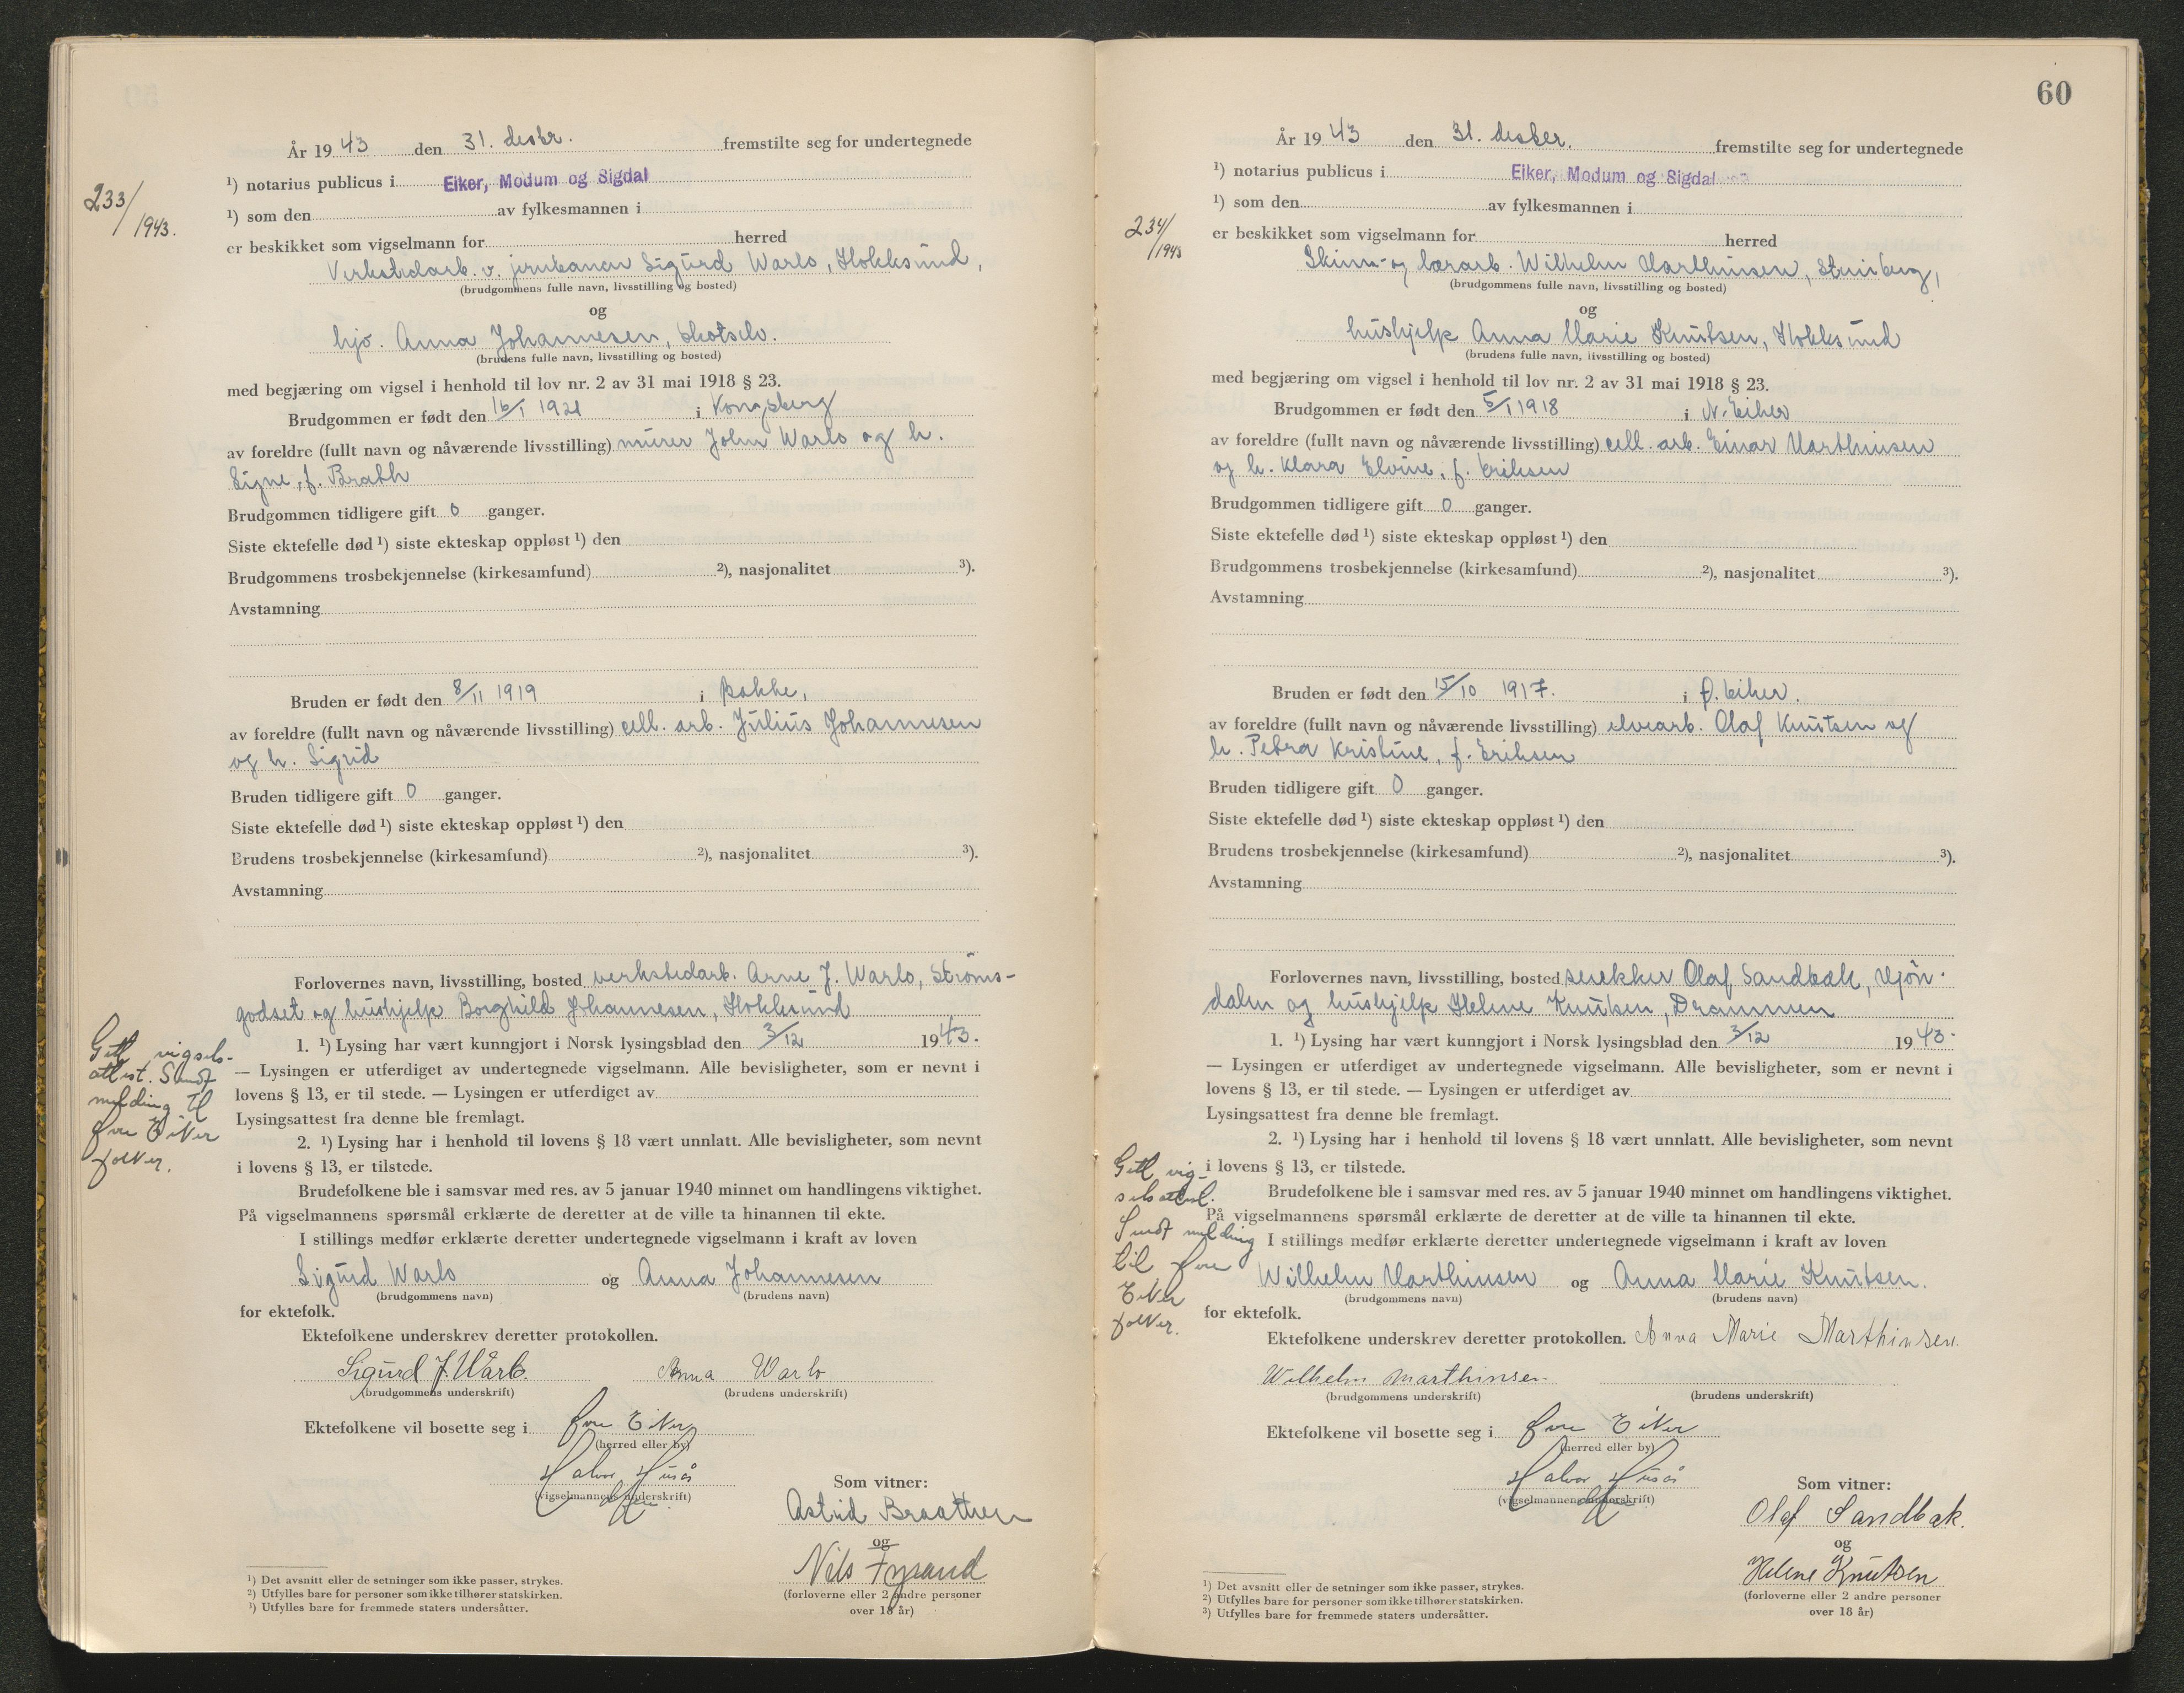 År 1943 den 31. desbr. fremstilte seg for undertegnede
¹) notarius publicus i Eiker, Modum og Sigdal
¹) som den av fylkesmannen i
233/1943.
er beskikket som vigselmann for herred
Verkstedarb. v. jernbanen Sigurd Warlo, Hokksund,
(brudgommens fulle navn, livsstilling og bosted)
og
hjv. Anna Johannesen, Skotselv.
(brudens fulle navn, livsstilling og bosted)
med begjæring om vigsel i henhold til lov nr. 2 av 31 mai 1918 § 23.
Brudgommen er født den 16/1 1921 i Kongsberg
av foreldre (fullt navn og nåværende livsstilling) murer John Warlo og h.
Signe, f. Brath
Brudgommen tidligere gift 0 ganger.
Siste ektefelle død ¹) siste ekteskap oppløst ¹) den
Brudgommens trosbekjennelse (kirkesamfund) ²), nasjonalitet ³).
Avstamning
Bruden er født den 8/11 1919 i Bakke,
av foreldre (fullt navn og nåværende livsstilling) cell. arb. Julius Johannesen
og h. Sigrid
Bruden tidligere gift 0 ganger.
Siste ektefelle død ¹) siste ekteskap oppløst ¹) den
Brudens trosbekjennelse (kirkesamfund) ²), nasjonalitet ³).
Avstamning
Forlovernes navn, livsstilling, bosted verkstedarb. Arne J. Warlo, Strøms-
godset og hushjelp Borghild Johannesen, Hokksund
1. ¹) Lysing har vært kunngjort i Norsk lysingsblad den 3/12 1943.
— Lysingen er utferdiget av undertegnede vigselmann. Alle bevisligheter, som er nevnt i
lovens § 13, er til stede. — Lysingen er utferdiget av
Lysingsattest fra denne ble fremlagt.
2. ¹) Lysing har i henhold til lovens § 18 vært unnlatt. Alle bevisligheter, som nevnt
i lovens § 13, er tilstede.
Gitt vigsels-
attest. Sendt
melding til
Øvre Eiker
folker.
Brudefolkene ble i samsvar med res. av 5 januar 1940 minnet om handlingens viktighet.
På vigselmannens spørsmål erklærte de deretter at de ville ta hinannen til ekte.
I stillings medfør erklærte deretter undertegnede vigselmann i kraft av loven
Sigurd Warlo og Anna Johannesen
(brudgommens navn) (brudens navn)
for ektefolk.
Ektefolkene underskrev deretter protokollen.
Sigurd J. Warlo. Anna Warlo
(brudgommens underskrift) (brudens underskrift)
Ektefolkene vil bosette seg i Øvre Eiker
(herred eller by)
Halvor Huså
(vigselmannens underskrift)
Som vitner:
Astrid Braathen
og
Nils Fysand
(forloverne eller 2 andre personer
over 18 år)
¹) Det avsnitt eller de setninger som ikke passer, strykes.
²) Utfylles bare for personer som ikke tilhører statskirken.
³) Utfylles bare for fremmede staters undersåtter.
60
År 1943 den 31. desber. fremstilte seg for undertegnede
¹) notarius publicus i Eiker, Modum og Sigdal
¹) som den av fylkesmannen i
234/1943
er beskikket som vigselmann for herred
Skinn- og lærarb. Wilhelm Marthinsen, Steinberg,
(brudgommens fulle navn, livsstilling og bosted)
og
hushjelp Anna Marie Knutsen, Hokksund
(brudens fulle navn, livsstilling og bosted)
med begjæring om vigsel i henhold til lov nr. 2 av 31 mai 1918 § 23.
Brudgommen er født den 5/1 1918 i N. Eiker
av foreldre (fullt navn og nåværende livsstilling) cell. arb. Einar Marthinsen
og h. Klara Elvine, f. Eriksen
Brudgommen tidligere gift 0 ganger.
Siste ektefelle død ¹) siste ekteskap oppløst ¹) den
Brudgommens trosbekjennelse (kirkesamfund) ²), nasjonalitet ³).
Avstamning
Bruden er født den 15/10 1917. i Ø. Eiker.
av foreldre (fullt navn og nåværende livsstilling) elvearb. Olaf Knutsen og
h. Petra Kristine, f. Eriksen
Bruden tidligere gift 0 ganger.
Siste ektefelle død ¹) siste ekteskap oppløst ¹) den
Brudens trosbekjennelse (kirkesamfund) ²), nasjonalitet ³).
Avstamning
Forlovernes navn, livsstilling, bosted snekker Olaf Sandbak, Mjøn-
dalen og hushjelp Helene Knutsen, Drammen
1. ¹) Lysing har vært kunngjort i Norsk lysingsblad den 3/12 1943.
— Lysingen er utferdiget av undertegnede vigselmann. Alle bevisligheter, som er nevnt i
lovens § 13, er til stede. — Lysingen er utferdiget av
Lysingsattest fra denne ble fremlagt.
2. ¹) Lysing har i henhold til lovens § 18 vært unnlatt. Alle bevisligheter, som nevnt
i lovens § 13, er tilstede.
Gitt vig-
selsattest.
Sendt melding
til Øvre
Eiker
folker.
Brudefolkene ble i samsvar med res. av 5 januar 1940 minnet om handlingens viktighet.
På vigselmannens spørsmål erklærte de deretter at de ville ta hinannen til ekte.
I stillings medfør erklærte deretter undertegnede vigselmann i kraft av loven
Wilhelm Marthinsen og Anna Marie Knutsen.
(brudgommens navn) (brudens navn)
for ektefolk.
Ektefolkene underskrev deretter protokollen. Anna Marie Marthinsen.
Wilhelm Marthinsen
(brudgommens underskrift) (brudens underskrift)
Ektefolkene vil bosette seg i Øvre Eiker
(herred eller by)
Halvor Huså
(vigselmannens underskrift)
Som vitner:
Olaf Sandbak.
og
Helene Knutsen
(forloverne eller 2 andre personer
over 18 år)
¹) Det avsnitt eller de setninger som ikke passer, strykes.
²) Utfylles bare for personer som ikke tilhører statskirken.
³) Utfylles bare for fremmede staters undersåtter.